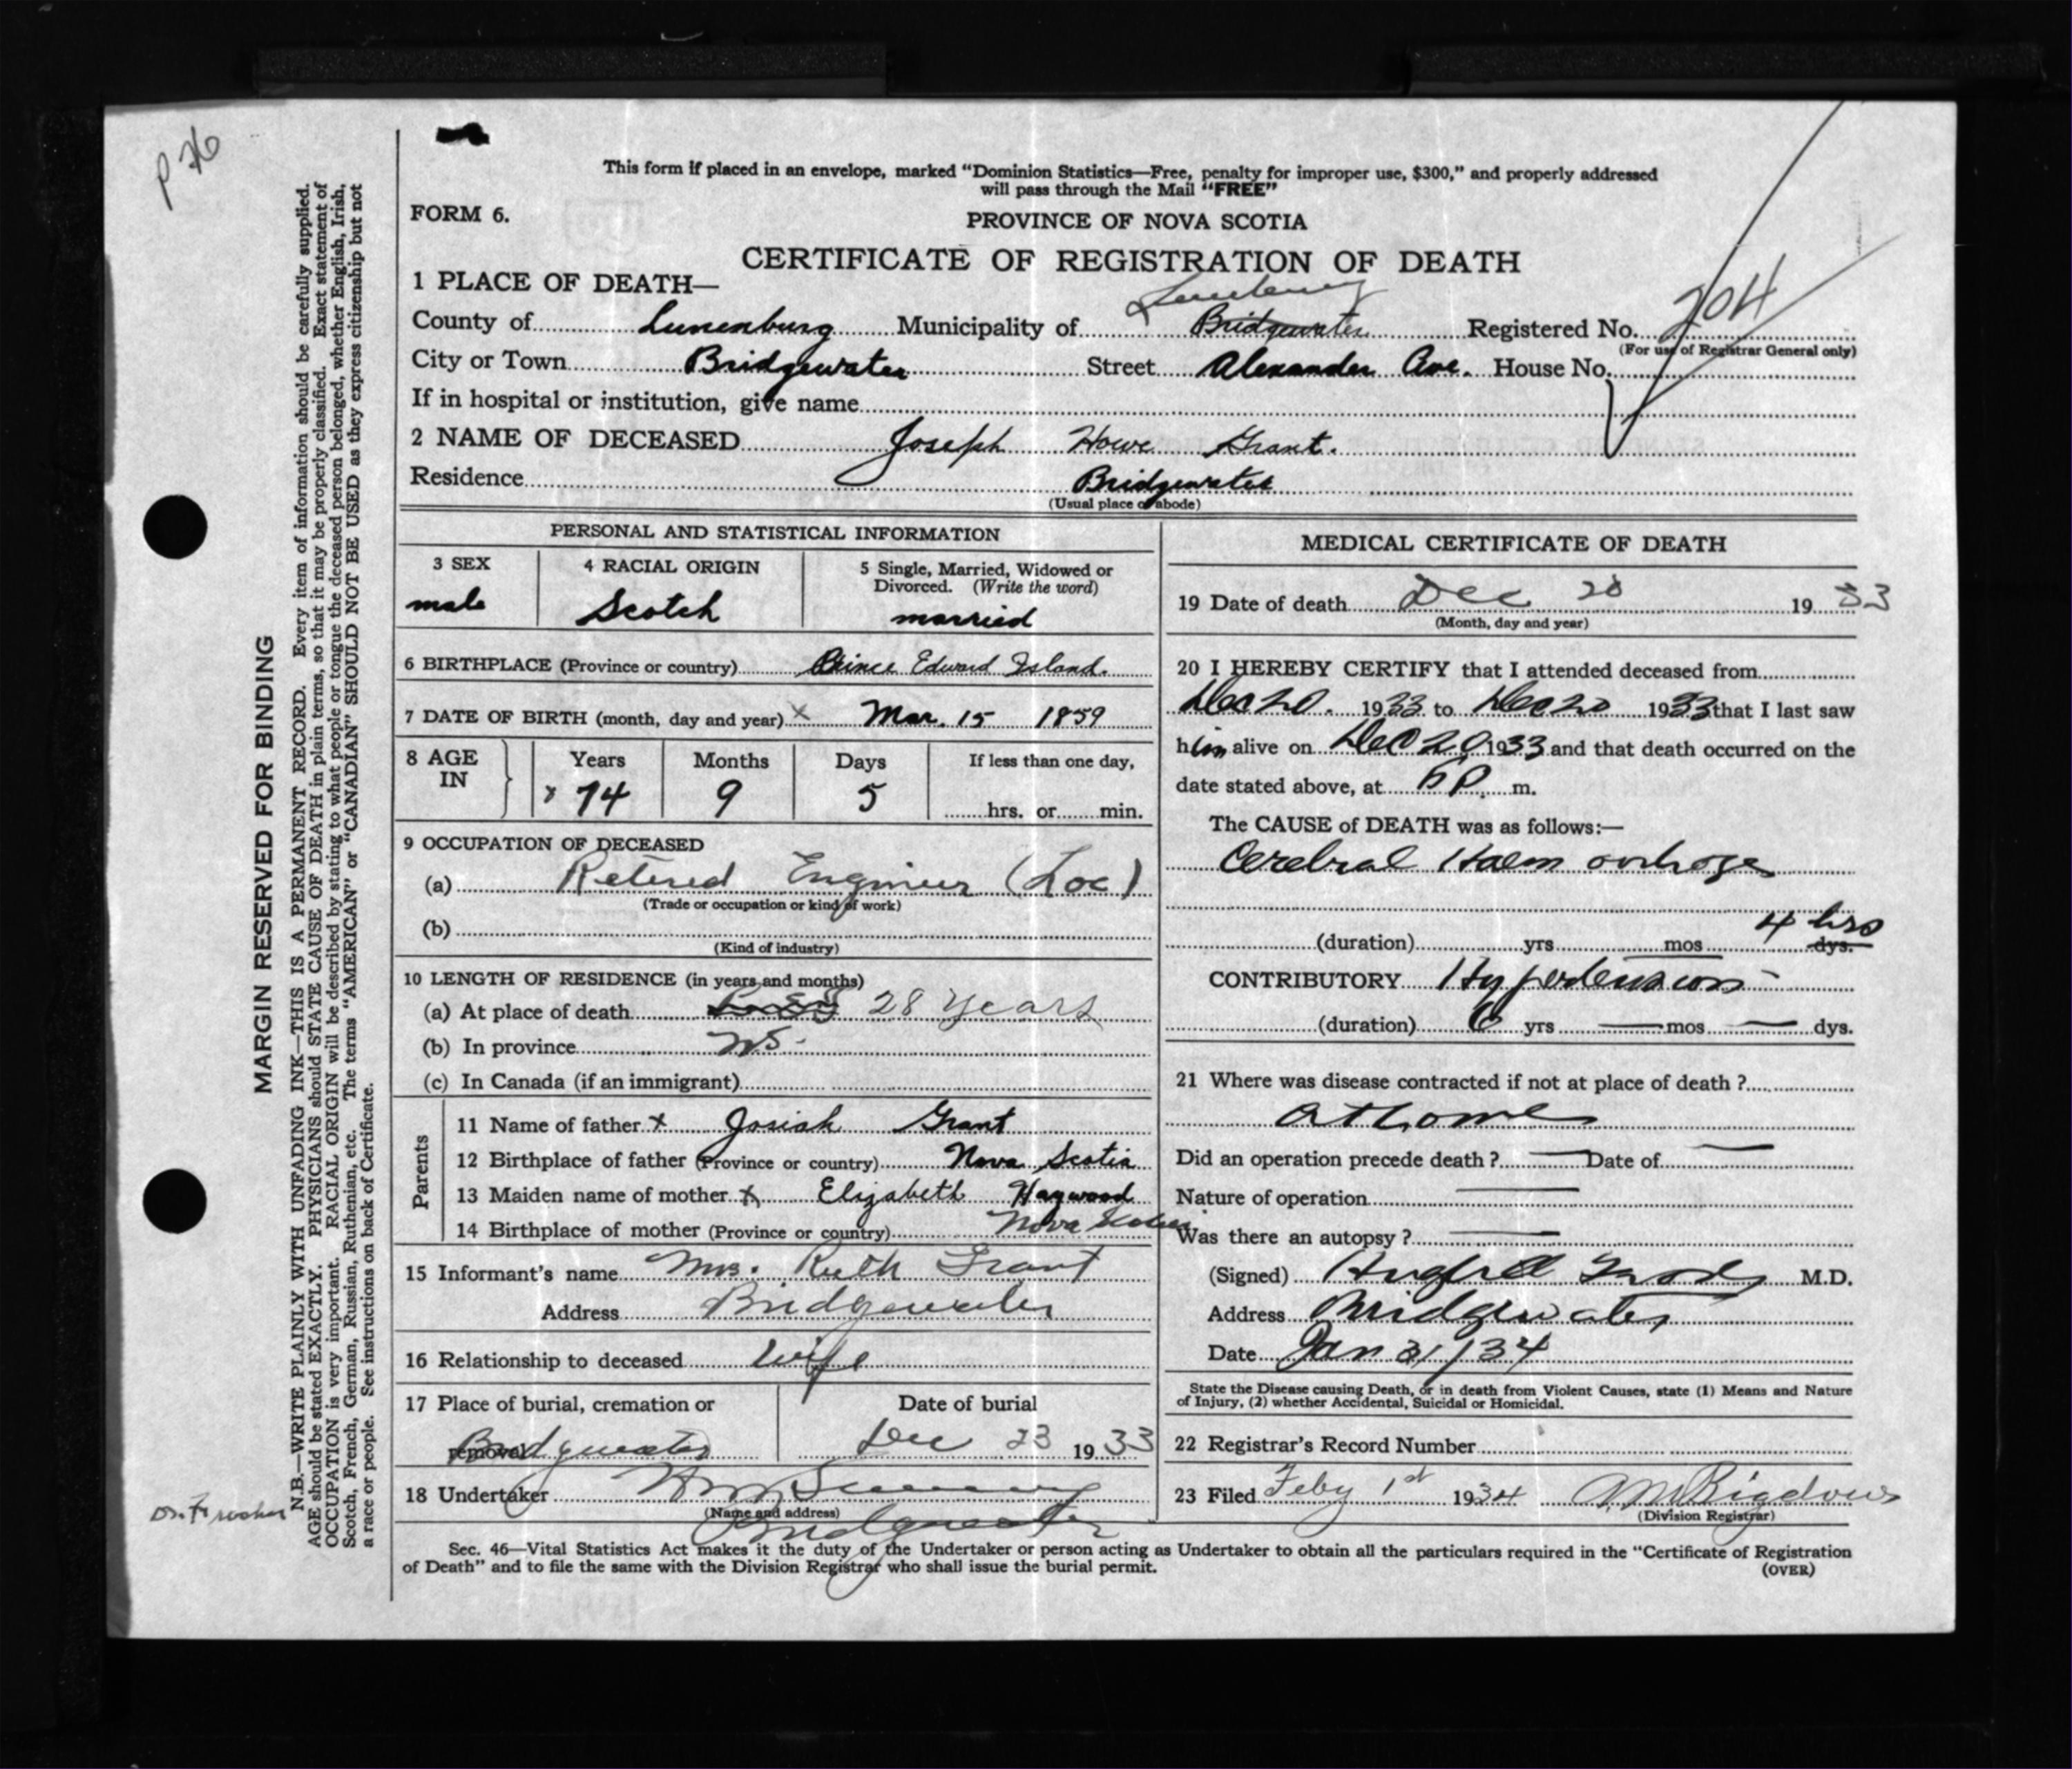 P 26
This form if placed in an envelope, marked “Dominion Statistics—Free, penalty for improper use, $300,” and properly addressed
will pass through the Mail “FREE”
FORM 6.
PROVINCE OF NOVA SCOTIA
CERTIFICATE OF REGISTRATION OF DEATH
1 PLACE OF DEATH—
Lunenburg
County of Lunenburg Municipality of Bridgewater Registered No. 204
(For use of Registrar General only)
City or Town Bridgewater Street Alexander Ave. House No.
If in hospital or institution, give name
2 NAME OF DECEASED Joseph Howe Grant.
Residence Bridgewater
(Usual place of abode)
PERSONAL AND STATISTICAL INFORMATION
3 SEX 4 RACIAL ORIGIN 5 Single, Married, Widowed or
Divorced. (Write the word)
male Scotch married
6 BIRTHPLACE (Province or country) Prince Edward Island.
7 DATE OF BIRTH (month, day and year) x Mar. 15 1859
8 AGE IN Years Months Days If less than one day,
x 74 9 5 hrs. or min.
9 OCCUPATION OF DECEASED
(a) Retired Engineer (Loc)
(Trade or occupation or kind of work)
(b)
(Kind of industry)
10 LENGTH OF RESIDENCE (in years and months)
(a) At place of death 28 years
(b) In province NS.
(c) In Canada (if an immigrant)
Parents
11 Name of father x Josiah Grant
12 Birthplace of father (Province or country) Nova Scotia
13 Maiden name of mother x Elizabeth Haywood
14 Birthplace of mother (Province or country) Nova Scotia
15 Informant's name Mrs. Ruth Grant
Address Bridgewater
16 Relationship to deceased wife
17 Place of burial, cremation or Date of burial
removal Bridgewater Dec 23 1933
18 Undertaker
(Name and address)
Bridgewater
MEDICAL CERTIFICATE OF DEATH
19 Date of death Dec 20 1933
(Month, day and year)
20 I HEREBY CERTIFY that I attended deceased from
Dec 20. 1933 to Dec 20 1933 that I last saw
him alive on Dec 20 1933 and that death occurred on the
date stated above, at P. m.
The CAUSE of DEATH was as follows:—
Cerebral Haemorrhage
4 hrs
(duration) yrs mos dys.
CONTRIBUTORY Hypertension
(duration) 6 yrs — mos — dys.
21 Where was disease contracted if not at place of death ?
at home
Did an operation precede death ? — Date of —
Nature of operation —
Was there an autopsy ? —
(Signed) M.D.
Address Bridgewater
Date Jan 31/34
State the Disease causing Death, or in death from Violent Causes, state (1) Means and Nature
of Injury, (2) whether Accidental, Suicidal or Homicidal.
22 Registrar's Record Number
23 Filed Feby 1st 1934
(Division Registrar)
Sec. 46—Vital Statistics Act makes it the duty of the Undertaker or person acting as Undertaker to obtain all the particulars required in the “Certificate of Registration
of Death” and to file the same with the Division Registrar who shall issue the burial permit.
(OVER)
MARGIN RESERVED FOR BINDING
N.B.—WRITE PLAINLY WITH UNFADING INK—THIS IS A PERMANENT RECORD. Every item of information should be carefully supplied.
AGE should be stated EXACTLY. PHYSICIANS should STATE CAUSE OF DEATH in plain terms, so that it may be properly classified. Exact statement of
OCCUPATION is very important. RACIAL ORIGIN will be described by stating to what people or tongue the deceased person belonged, whether English, Irish,
Scotch, French, German, Russian, Ruthenian, etc. The terms “AMERICAN” or “CANADIAN” SHOULD NOT BE USED as they express citizenship but not
a race or people. See instructions on back of Certificate.